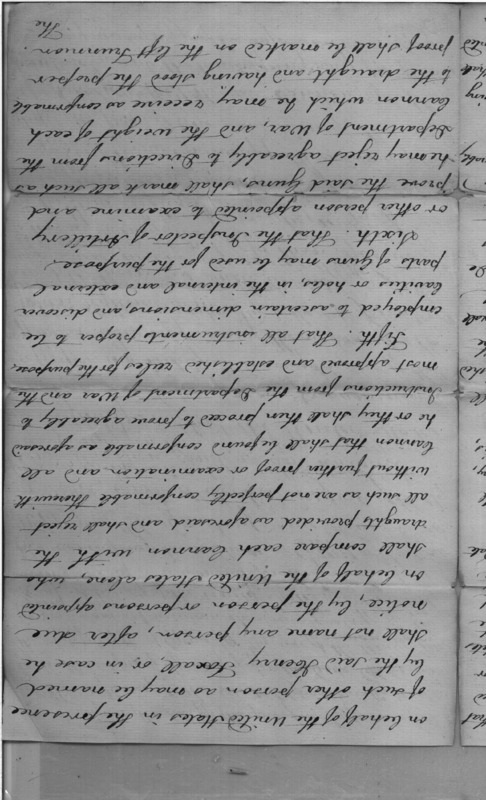 on behalf of the United States in the presence
of such other person as may be named
by the said Henry Foxall, or in case he
shall not name any person, after due
notice, by the person or persons appointed
on behalf of the United States alone, who
shall compare each Cannon with the
draughts provided as aforesaid and shall reject
all such as are not perfectly conformable therewith
without further proof or examination and all
Cannon that shall be found conformable as aforesaid
he or they shall then proceed to prove agreeably to
Instructions from the Department of War and the
most approved and established rules for the purpose.
Fifth. That all instruments proper to be
employed to ascertain dimensions, and discover
cavities or holes, in the internal and external
parts of Guns may be used for the purpose.
Sixth. That the Inspector of Artillery
or other person appointed to examine and
prove the said Guns, shall mark all such as
he may reject agreeably to directions from the
Department of War, and the weight of each
Cannon which he may receive as conformable
to the draught and having stood the proper
proof shall be marked on the left Trunnion.
The